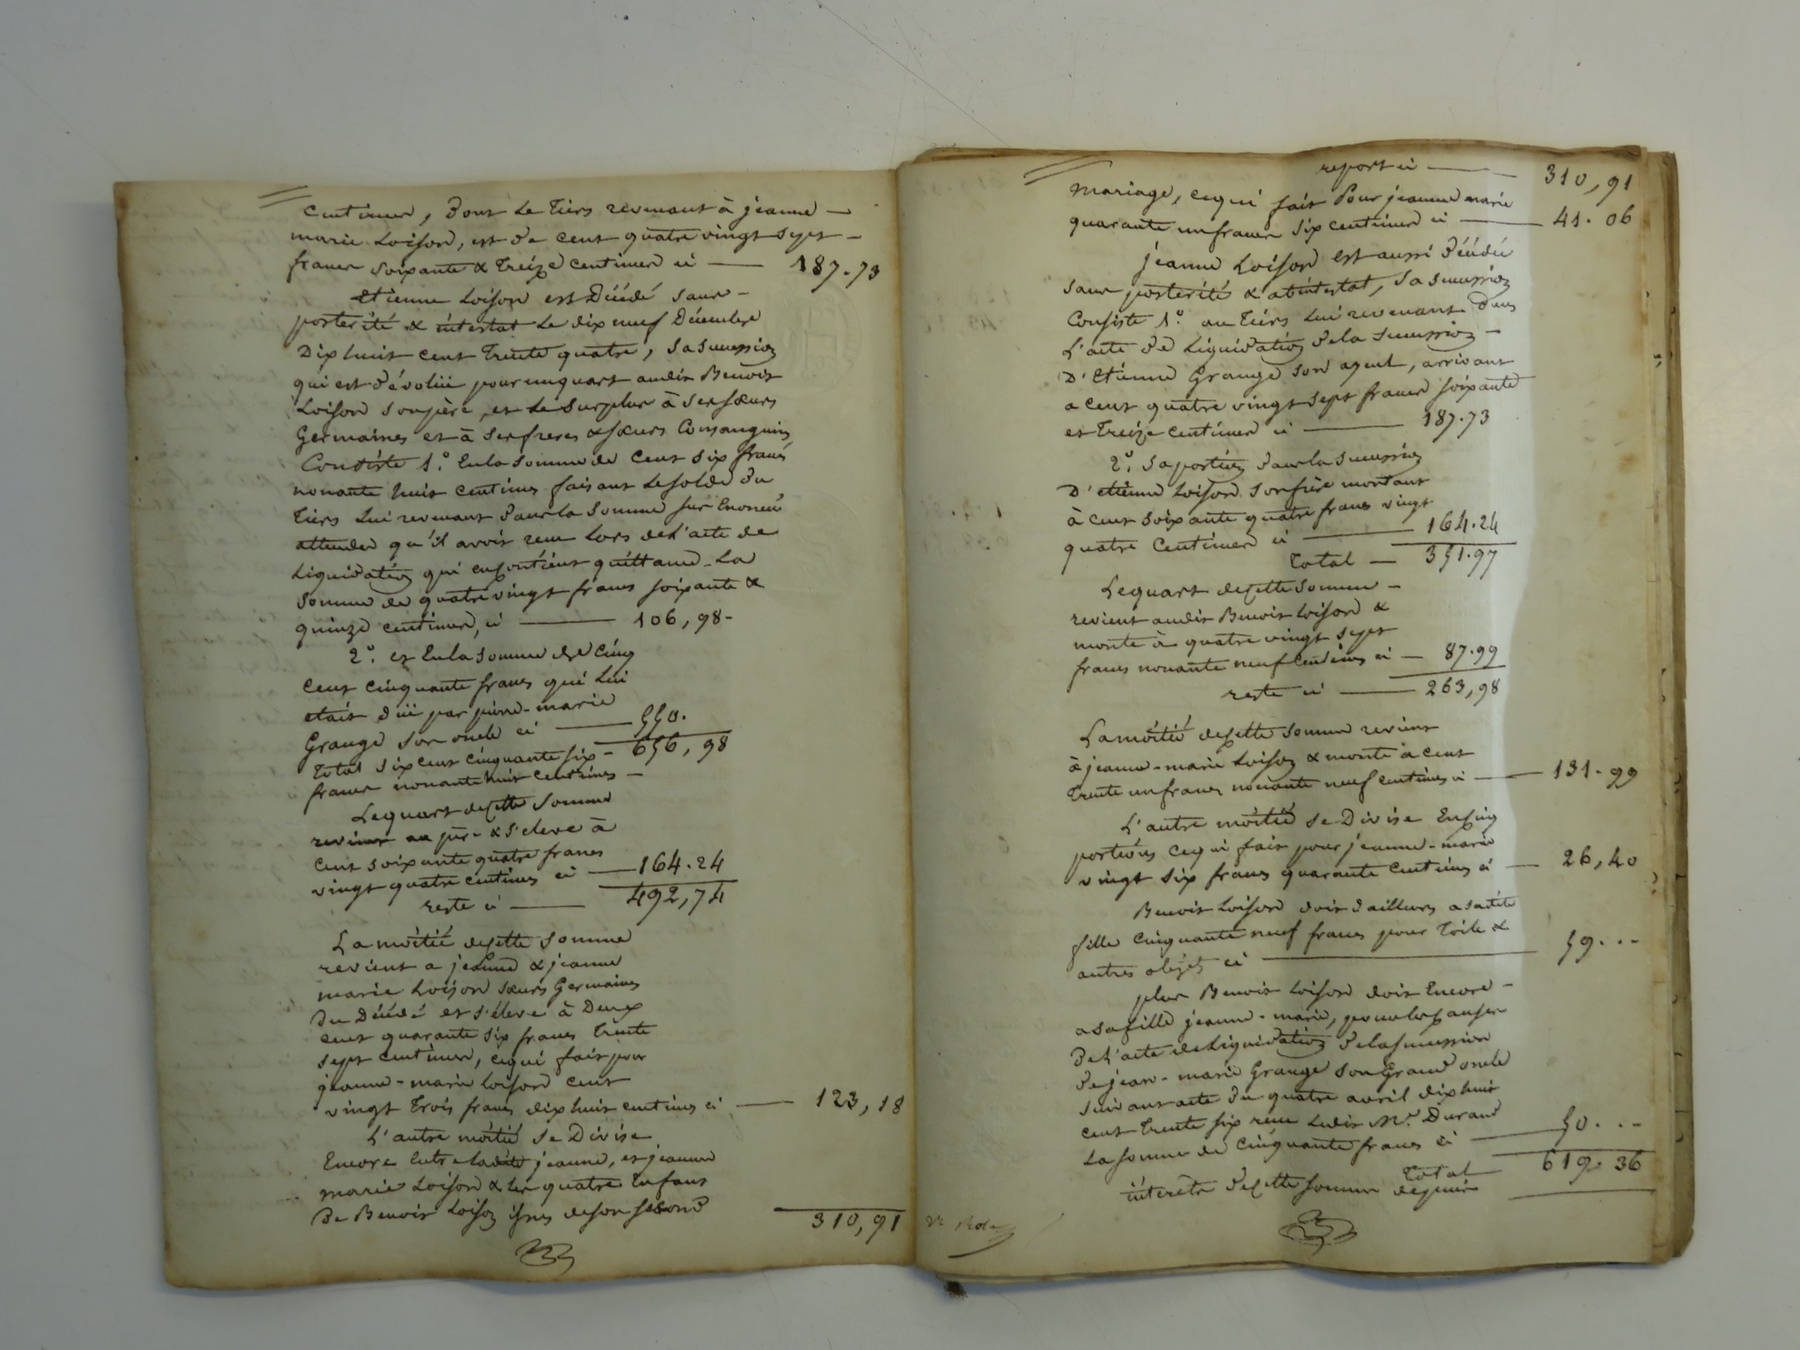 centimes, dont le tiers revenant à jeanne —
marie Loison, est de cent quatre vingt sept —
francs soixante & treize centimes ci — 187.73
Etienne Loison est Décédé sans —
postérité & intestat le dix neuf Décembre
Dix huit cent trente quatre, sa succession
qui est dévolüe pour un quart audit Benoit
Loison son père, et le surplus à ses sœurs
Germaines et à ses freres & sœurs Consanguins
Consiste 1.° En la somme de cent six francs
nonante huit centimes faisant le solde du
tiers lui revenant dans la somme sus Enoncée
attendu qu'il avoit recu lors de l'acte de
Liquidation qui en contient quittance La
somme de quatre vingt francs soixante &
quinze centimes, ci — 106,98-
2.° et En la somme de cinq
cent cinquante francs qui lui
etait düe par pierre-marie
Grange son oncle ci — 550.
total six cent cinquante six — 656,98
francs nonante huit centimes —
Le quart de cette somme
revient au père & s'eleve à
cent soixante quatre francs
vingt quatre centimes ci — 164.24
reste ci — 492,74
La moitié de cette somme
revient a jeanne & jeanne
marie Loison sœurs Germaines
du Décédé et s'éleve à Deux
cent quarante six francs trente
sept centimes, ce qui fait pour
jeanne-marie Loison cent
vingt trois francs dix huit centimes ci — 123,18
L'autre moitié se Divise
Encore Entre ladite jeanne, et jeanne
marie Loison & les quatre Enfans
De Benoit Loison issus de son second
310,91
report ci — 310,91
mariage, ce qui fait Pour jeanne marie
quarante un francs six centimes ci — 41.06
jeanne Loison est aussi décédée
sans postérité & abintestat, sa succession
Consiste 1.° au tiers lui revenant dans
L'acte de Liquidation de la succession —
D'Etienne Grange son ayeul, arrivant
a cent quatre vingt sept francs soixante
et treize centimes ci — 187.73
2.° sa portion dans la succession
D'etienne Loison son frère montant
à cent soixante quatre francs vingt
quatre centimes ci — 164.24
total — 351.97
Le quart de cette somme —
revient audit Benoit Loison &
monte à quatre vingt sept
francs nonante neuf centimes ci — 87.99
reste ci — 263,98
La moitié de cette somme revient
à jeanne-marie Loison & monte à cent
trente un francs nonante neuf centimes ci — 131.99
L'autre moitié se Divise En cinq
portions ce qui fait pour jeanne-marie
vingt six francs quarante centimes ci — 26,40
Benoit Loison doit d'ailleurs a sadite
fille cinquante neuf francs pour toile &
autres objets ci — 59...
plus Benoit Loison doit Encore —
a sa fille jeanne-marie,
De l'acte de Liquidation de la succession
de jean-marie Grange son Grand oncle
suivant acte du quatre avril dix huit
cent trente six recu ledit M.e Durand
La somme de cinquante francs ci — 50...
total — 619.36
intérêts de cette somme depuis